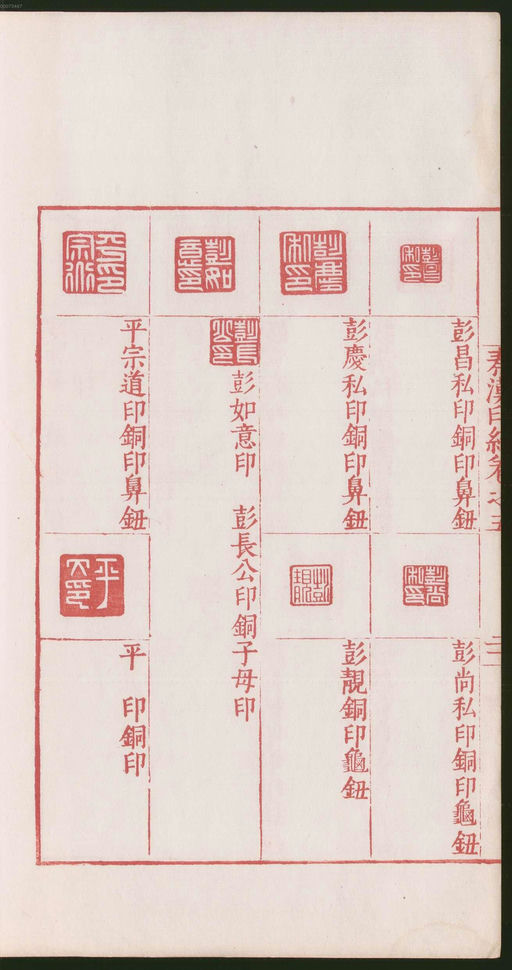 秦漢印統卷之五
彭昌私印銅印鼻鈕
彭尚私印銅印龜鈕
彭慶私印銅印鼻鈕
彭靚銅印龜鈕
彭如意印　彭長公印銅子母印
平宗道印銅印鼻鈕
平　印銅印